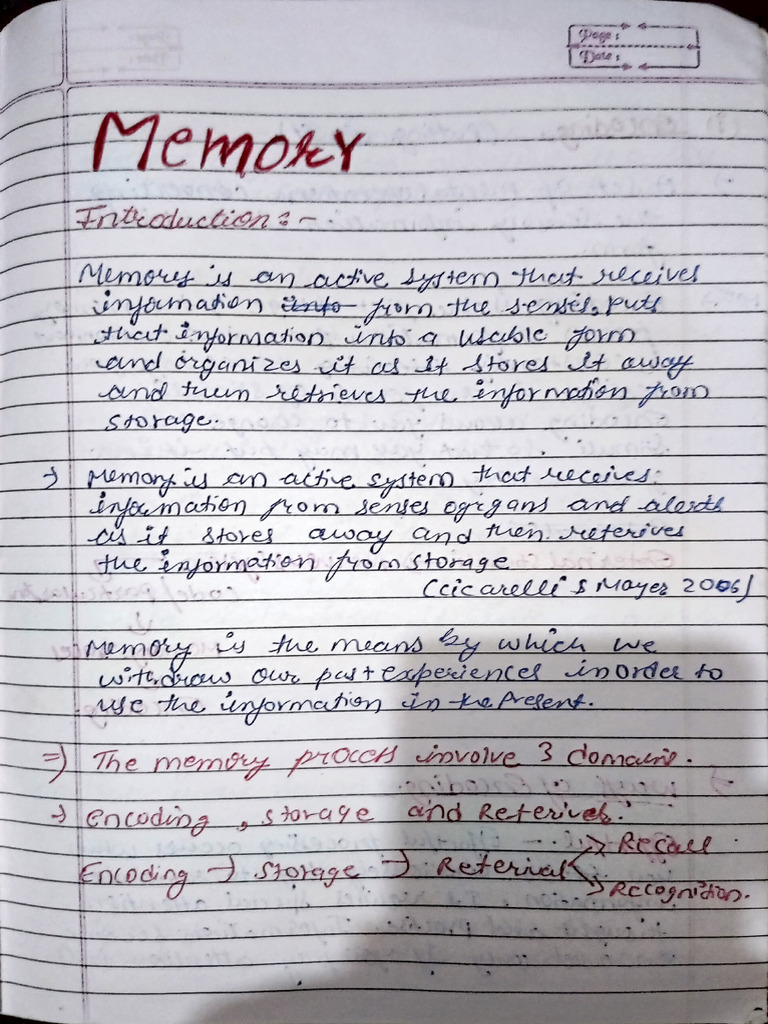 Page :
Date :
Memory
Introduction :-
Memory is an active system that receives
information into from the senses, puts
that information into a usable form
and organizes it as it stores it away
and then retrieves the information from
storage.
→ Memory is an active system that receives
information from senses ogrgans and alerts
as it stores away and then reterives
the information from storage
(cicarelli & Mayer 2006)
Memory is the means by which we
withdraw our past experiences inorder to
use the information in the present.
⇒) The memory process involve 3 domains.
→ encoding, storage and Reterival.
Encoding → Storage → Reterial
Recall
Recognition.